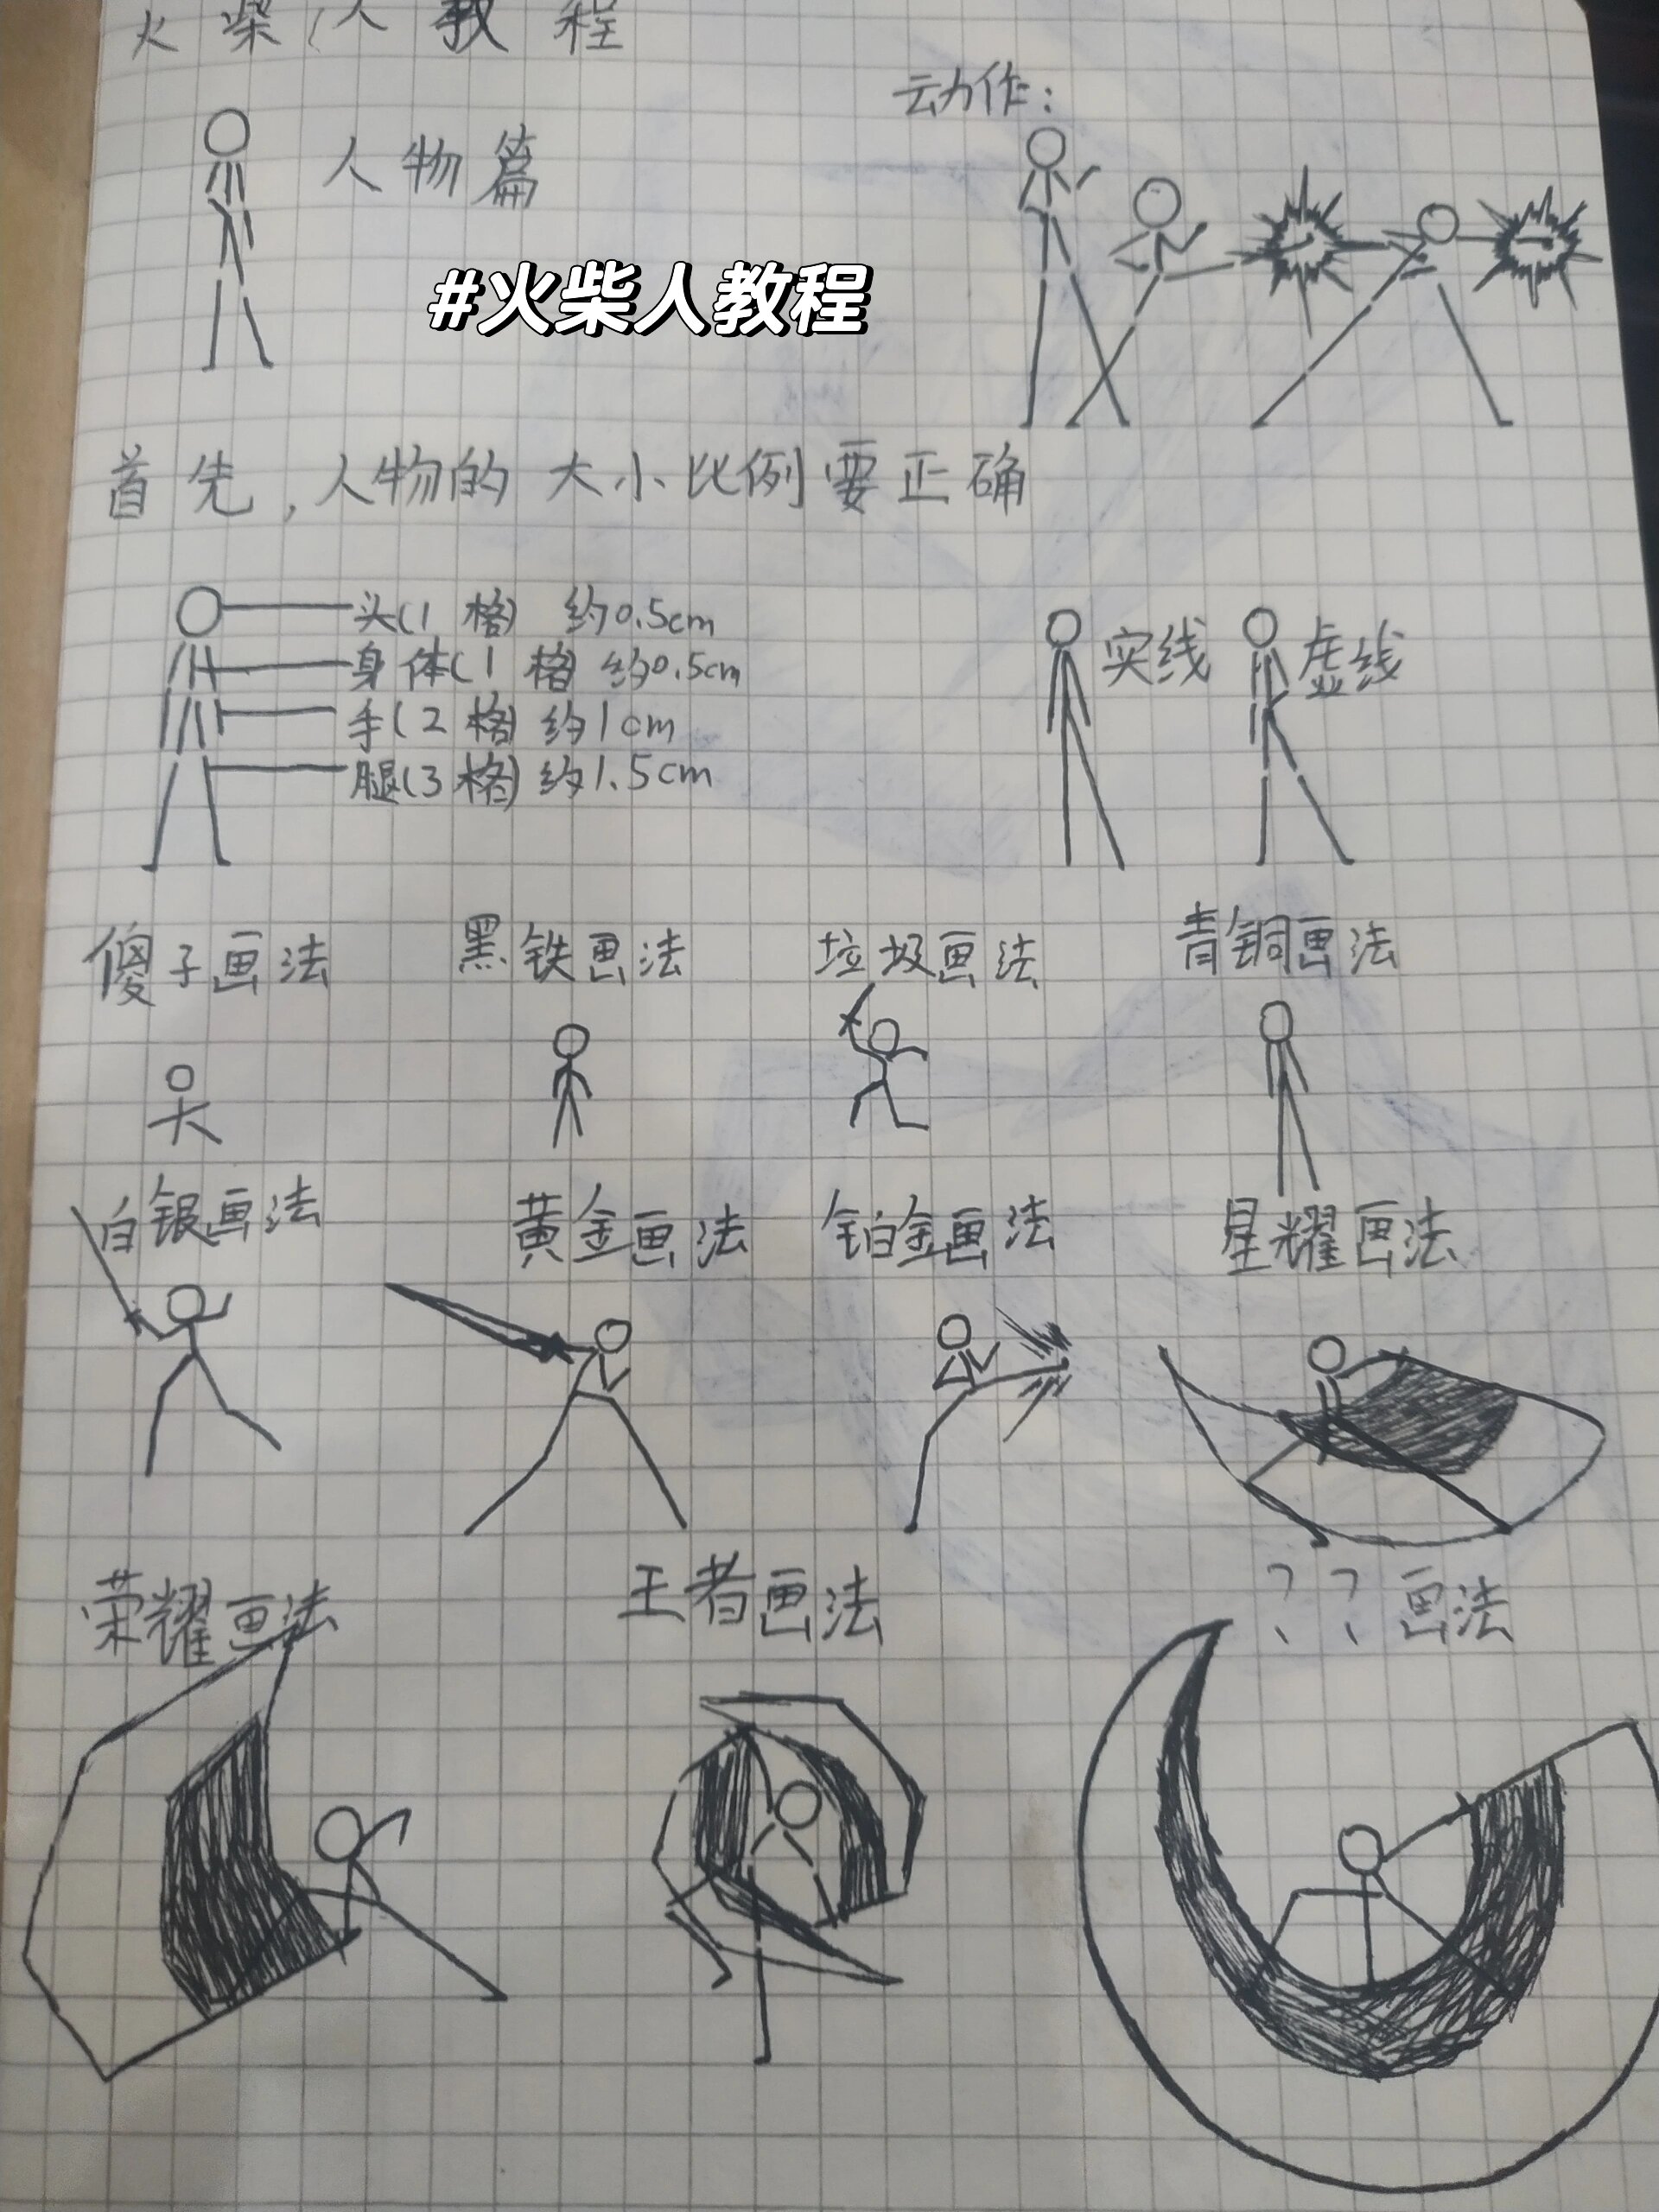 火柴人教程
动作：
人物篇
#火柴人教程
首先，人物的大小比例要正确
头(1格) 约0.5cm
身体(1格) 约0.5cm
手(2格) 约1cm
腿(3格) 约1.5cm
实线 虚线
傻子画法 黑铁画法 垃圾画法 青铜画法
白银画法 黄金画法 铂金画法 星耀画法
荣耀画法 王者画法 ？？画法